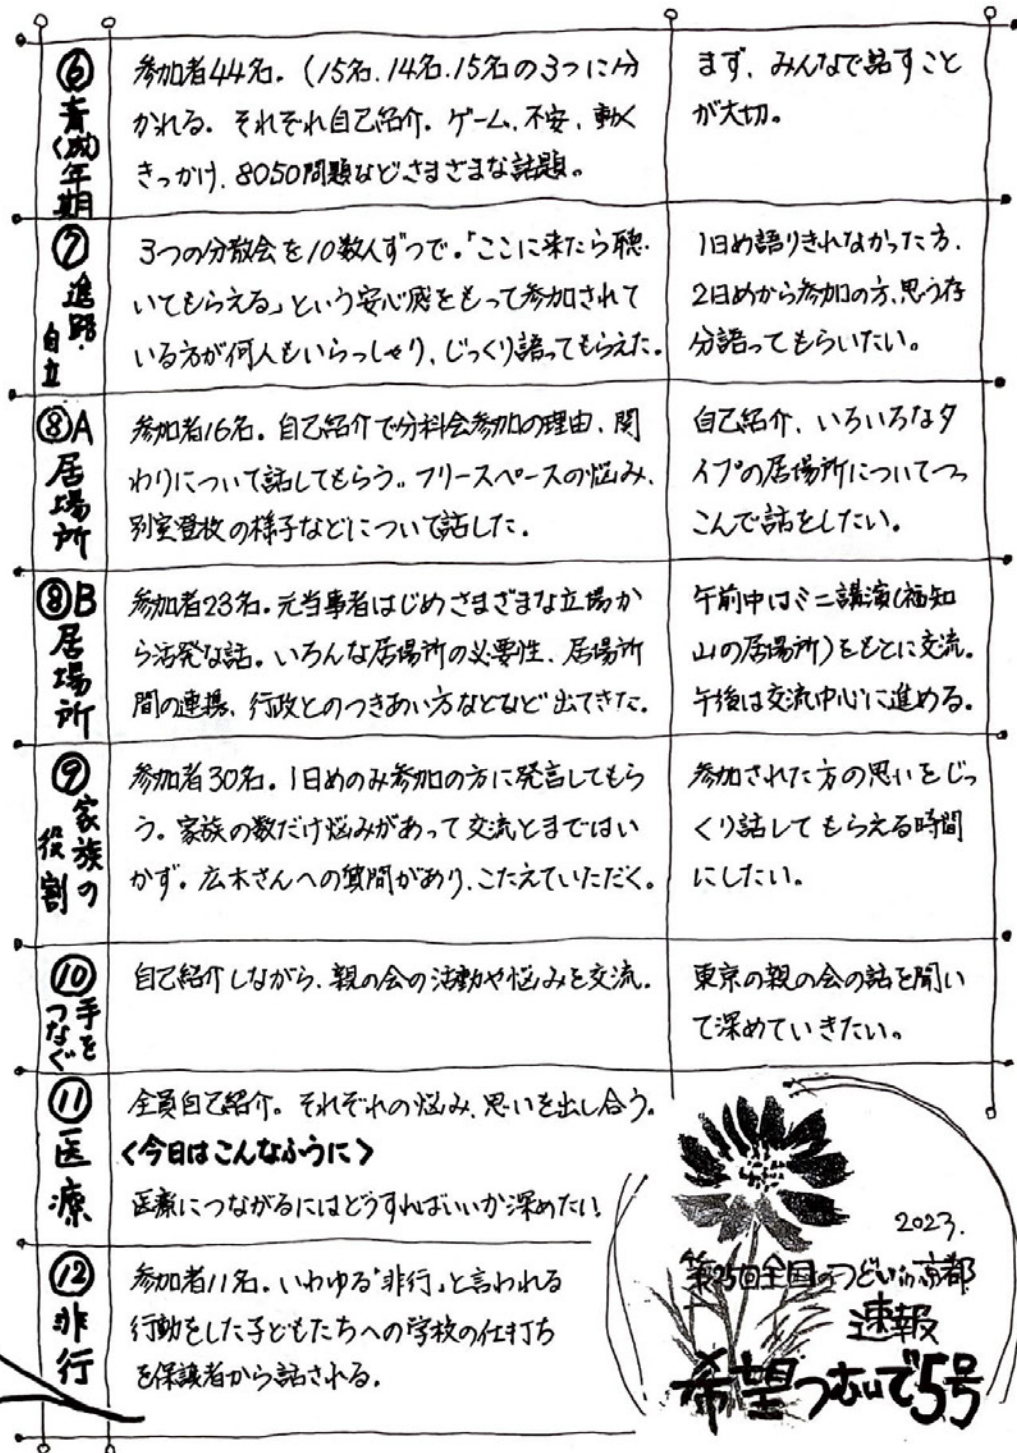 ⑥青(成)年期
参加者44名。(15名、14名、15名の3つに分
かれる。それぞれ自己紹介。ゲーム、不安、動く
きっかけ、8050問題などさまざまな話題。
まず、みんなで話すこと
が大切。
⑦進路・自立
3つの分散会を10数人ずつで。「ここに来たら聴
いてもらえる」という安心感をもって参加されて
いる方が何人もいらっしゃり、じっくり語ってもらえた。
1日め語りきれなかった方、
2日めから参加の方、思う存
分語ってもらいたい。
⑧A居場所
参加者16名。自己紹介で分科会参加の理由、関
わりについて話してもらう。フリースペースの悩み、
別室登校の様子などについて話した。
自己紹介、いろいろなタ
イプの居場所についてつっ
こんで話をしたい。
⑧B居場所
参加者23名。元当事者はじめさまざまな立場か
ら活発な話。いろんな居場所の必要性、居場所
間の連携、行政とのつきあい方などなど出てきた。
午前中はミニ講演(福知
山の居場所)をもとに交流。
午後は交流中心に進める。
⑨家族の役割
参加者30名。1日めのみ参加の方に発言してもら
う。家族の数だけ悩みがあって交流とまではい
かず。広木さんへの質問があり、こたえていただく。
参加された方の思いをじっ
くり話してもらえる時間
にしたい。
⑩手をつなぐ
自己紹介しながら、親の会の活動や悩みを交流。
東京の親の会の話を聞い
て深めていきたい。
⑪医療
全員自己紹介。それぞれの悩み、思いを出し合う。
<今日はこんなふうに>
医療につながるにはどうすればいいか深めたい!
⑫非行
参加者11名。いわゆる「非行」と言われる
行動をした子どもたちへの学校の仕打ち
を保護者から話される。
2023.
第25回全国のつどいin京都
速報
希望つむいで5号